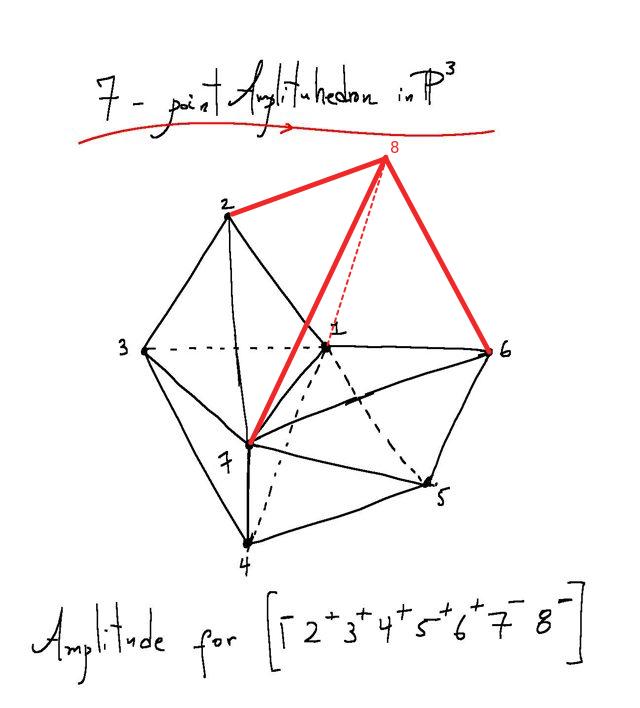 7 - point Amplituhedron in ℙ³
8
2
3
1
6
7
5
4
Amplitude for [1⁻ 2⁺ 3⁺ 4⁺ 5⁺ 6⁺ 7⁻ 8⁻]